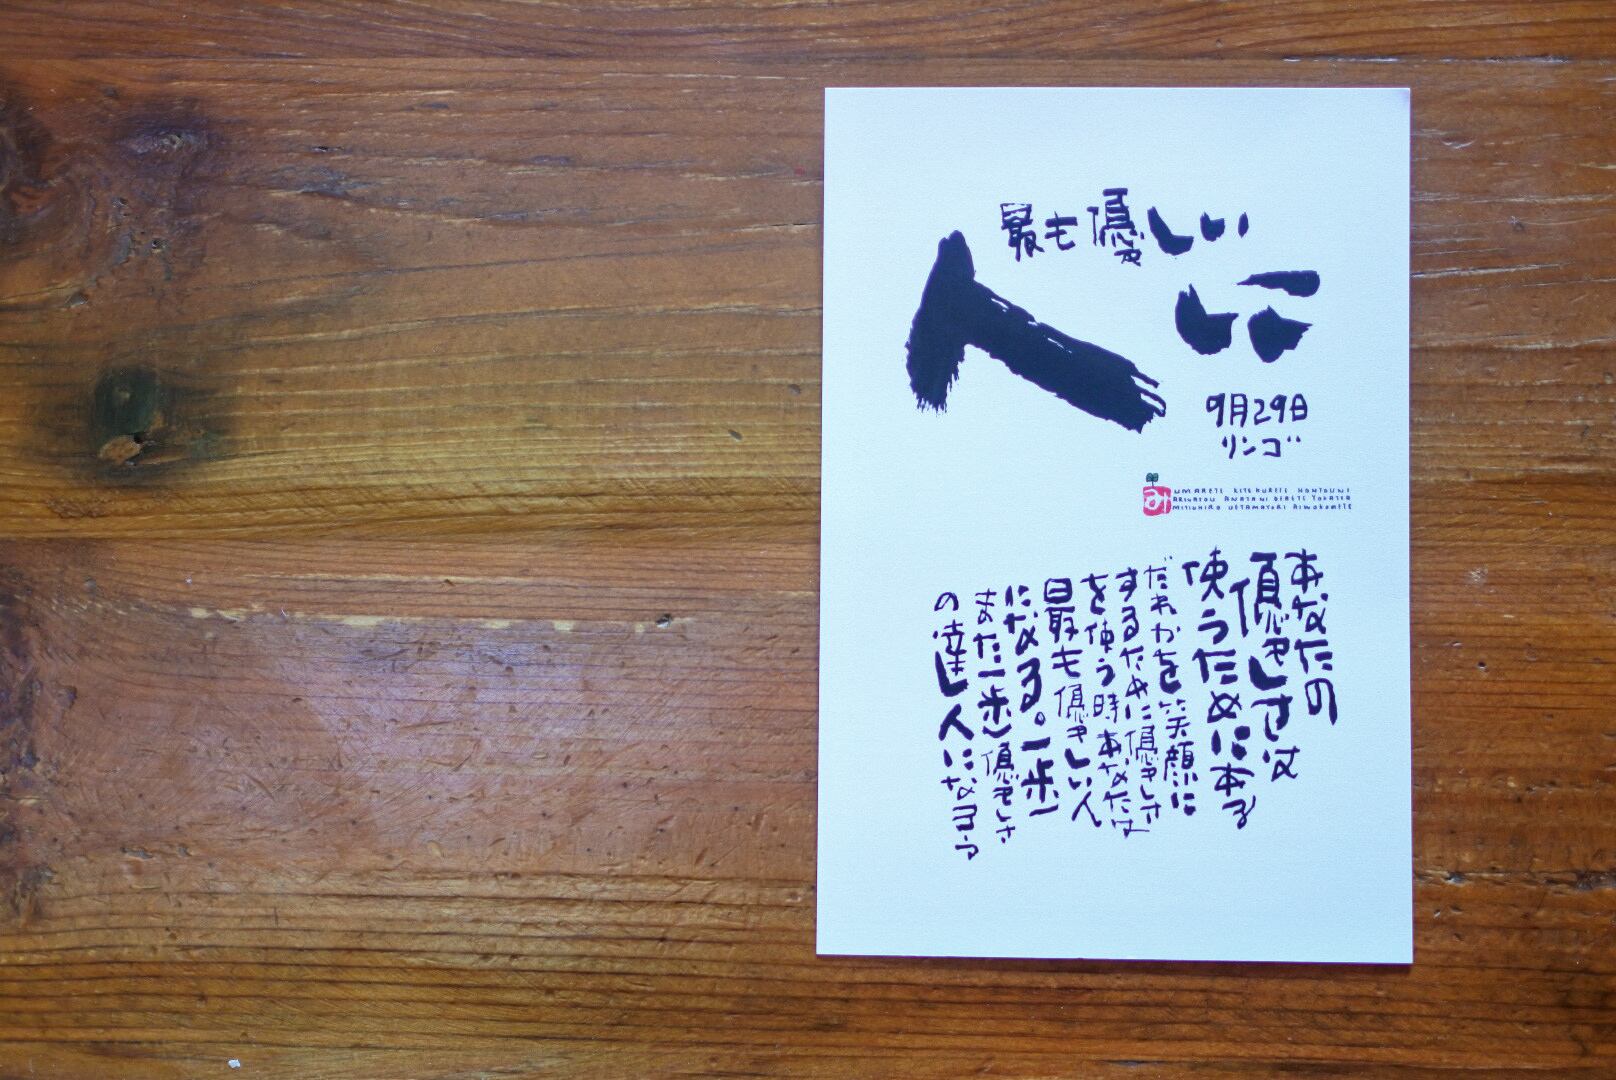 最も優しい
人に
9月29日
リンゴ
み
UMARETE KITEKURETE HONTOUNI
ARIGATOU ANATANI DEAETE YOKATTA
MITUHIRO UETAMAYORI AIWOKOMETE
あなたの
優しさは
使うためにある
だれかを笑顔に
するために優しさ
を使う時あなたは
最も優しい人
になる。一歩一
また一歩優しさ
の達人になろう